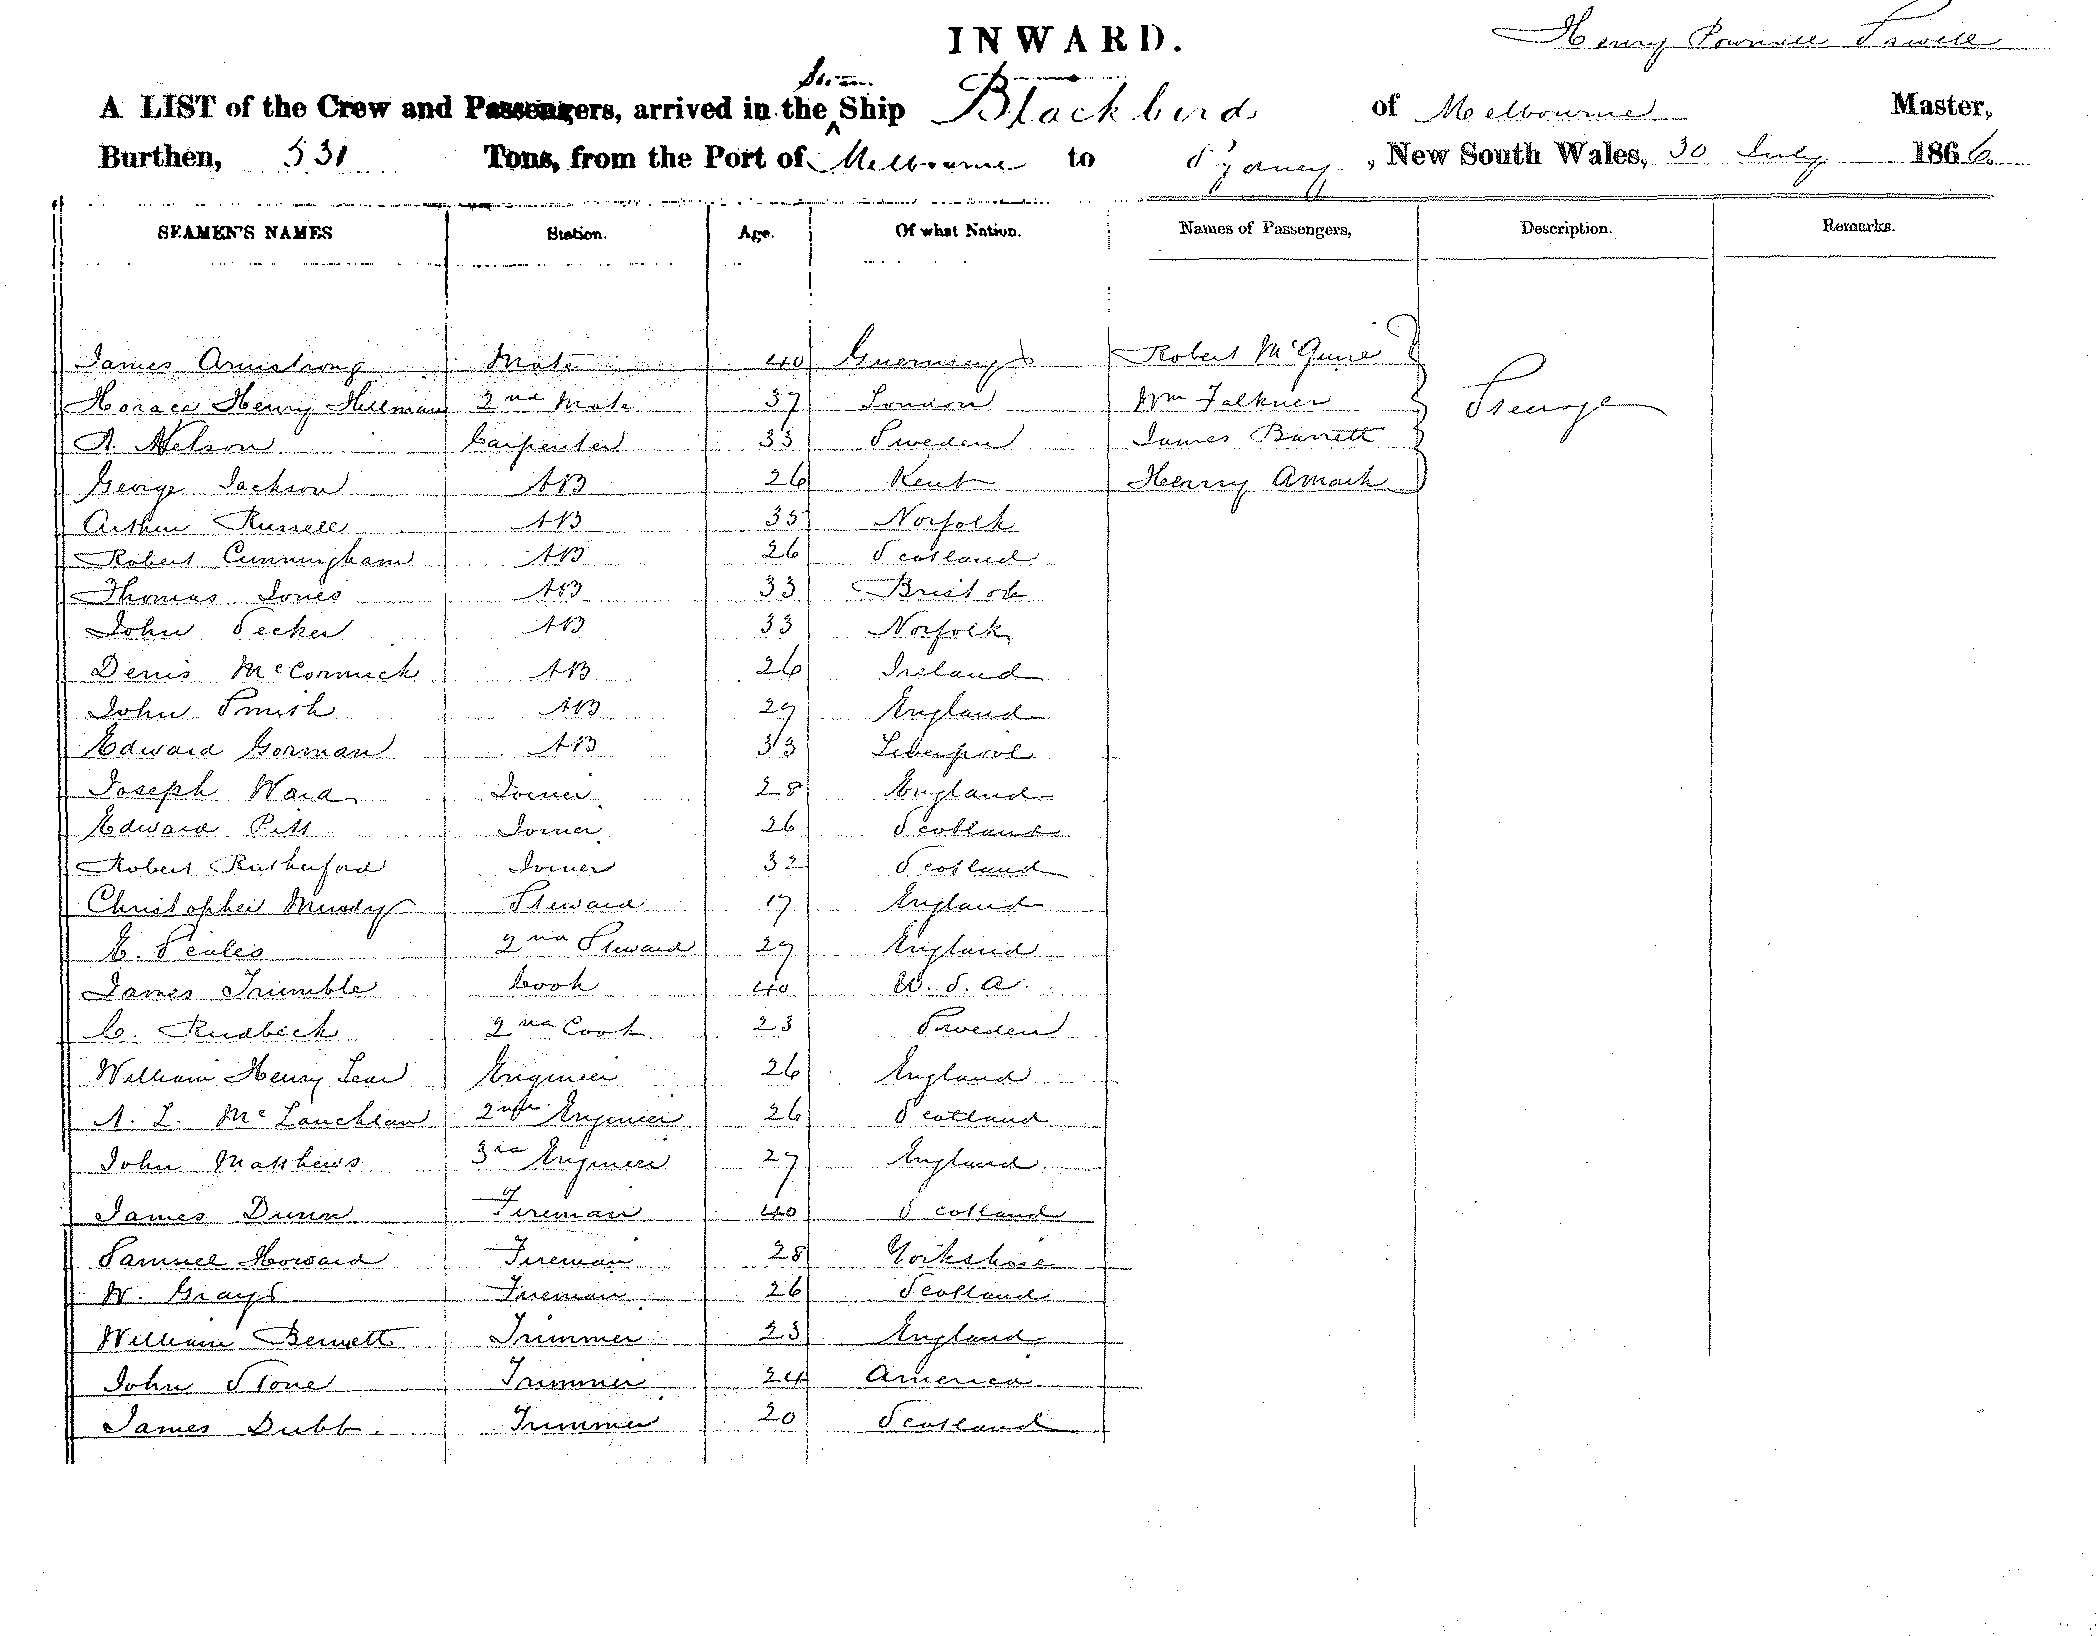 INWARD.
Henry Pownall
A LIST of the Crew and Passengers, arrived in the Steam Ship Blackbird of Melbourne Master,
Burthen, 531 Tons, from the Port of Melbourne to Sydney, New South Wales, 30 July 1866
SEAMEN'S NAMES Station. Age. Of what Nation. Names of Passengers, Description. Remarks.
James Armstrong Mate 40 Guernsey Robert McGuire
Horace Henry Hillman 2nd Mate 37 London Wm Falkner Steerage
A. Nelson Carpenter 33 Sweden James Barrett
George Jackson AB 26 Kent Henry
Arthur Russell AB 35 Norfolk
Robert Cunningham AB 26 Scotland
Thomas Jones AB 33 Bristol
John Secker AB 33 Norfolk
Denis McCormick AB 26 Ireland
John Smith AB 29 England
Edward Gorman AB 33 Liverpool
Joseph Ward Joiner 28 England
Edward Pitt Joiner 26 Scotland
Robert Rutherford Joiner 32 Scotland
Christopher Mundy Steward 17 England
E. Scales 2nd Steward 29 England
James Trumble Cook 40 U.S.A.
C. Rudbeck 2nd Cook 23 Sweden
William Henry Lear Engineer 26 England
A. L. McLauchlan 2nd Engineer 26 Scotland
John Matthews 3rd Engineer 27 England
James Dunn Fireman 40 Scotland
Samuel Howard Fireman 28 Yorkshire
W. Grays Fireman 26 Scotland
William Bennett Trimmer 23 England
John Stone Trimmer 24 America
James Dubb. Trimmer 20 Scotland